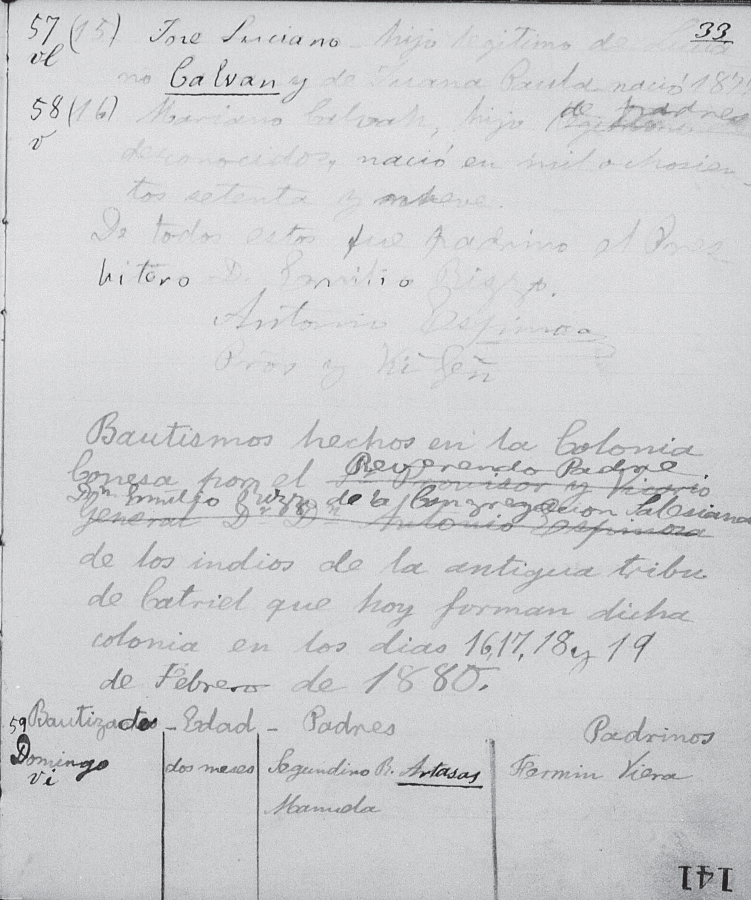 33
57 (15) Jose Luciano - hijo legitimo de Lucia
vl
no Calvan y de Juana Paula nació 187
58 (16) Mariano Calvan, hijo legitimo de padres
v
desconocidos, nació en mil ochosien-
tos setenta y nueve.
De todos estos fue padrino el Pres
bitero D. Emilio Rizzo.
Antonio Espinosa
Pros y Vi Gen
Bautismos hechos en la Colonia
Conesa por el Reverendo Padre
Provisor y Vicario
Dn Emilio Rizzo de la Congregacion Salesiana
General Dr Dn Antonio Espinosa
de los indios de la antigua tribu
de Catriel que hoy forman dicha
colonia en los dias 16,17,18 y 19
de Febrero de 1880.
59 Bautizados - Edad - Padres Padrinos
Domingo dos meses Segundino R. Artasas Fermin Viera
vi Manuela
141